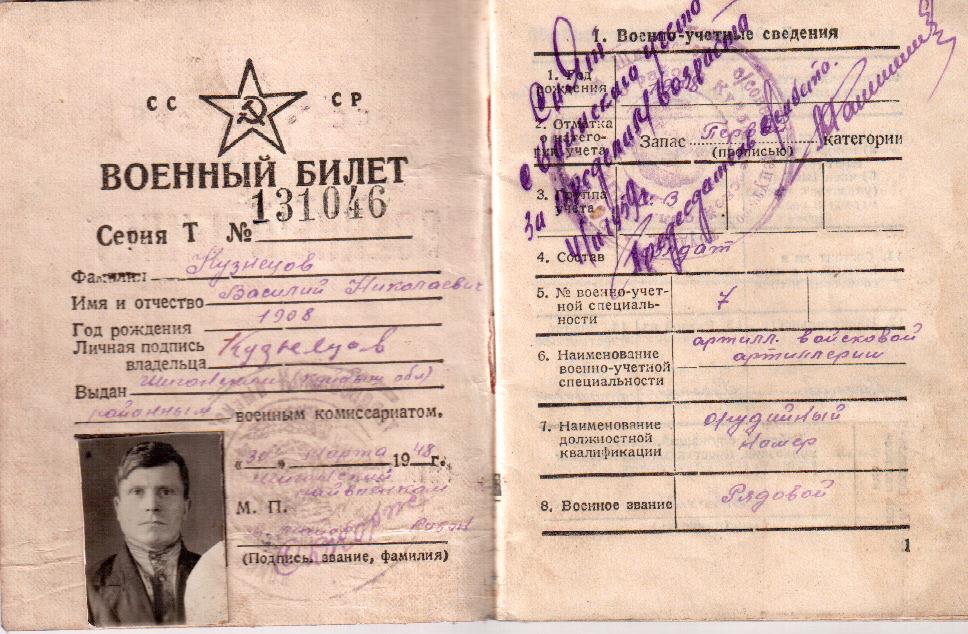 СС СР
ВОЕННЫЙ БИЛЕТ
Серия Т № 131046
Фамилия Кузнецов
Имя и отчество Василий Николаевич
Год рождения 1908
Личная подпись
владельца Кузнецов
Выдан Шигонским (Куйбыш обл)
районным военным комиссариатом.
"30" марта 1948 г.
Шигонский
райвоенком
М. П.
(Подпись, звание, фамилия)
1. Военно-учетные сведения
Снят
с воинского учета
за пределами возраста
1. Год
рождения
2. Отметка
категории учета
Запас Первой категории
(прописью)
3. Группа
учета
1959г.
4. Состав Солдат
5. № военно-учет-
ной специаль-
ности
7
6. Наименование
военно-учетной
специальности
артилл. войсковой
артиллерии
7. Наименование
должностной
квалификации
орудийный
номер
8. Военное звание Рядовой
1